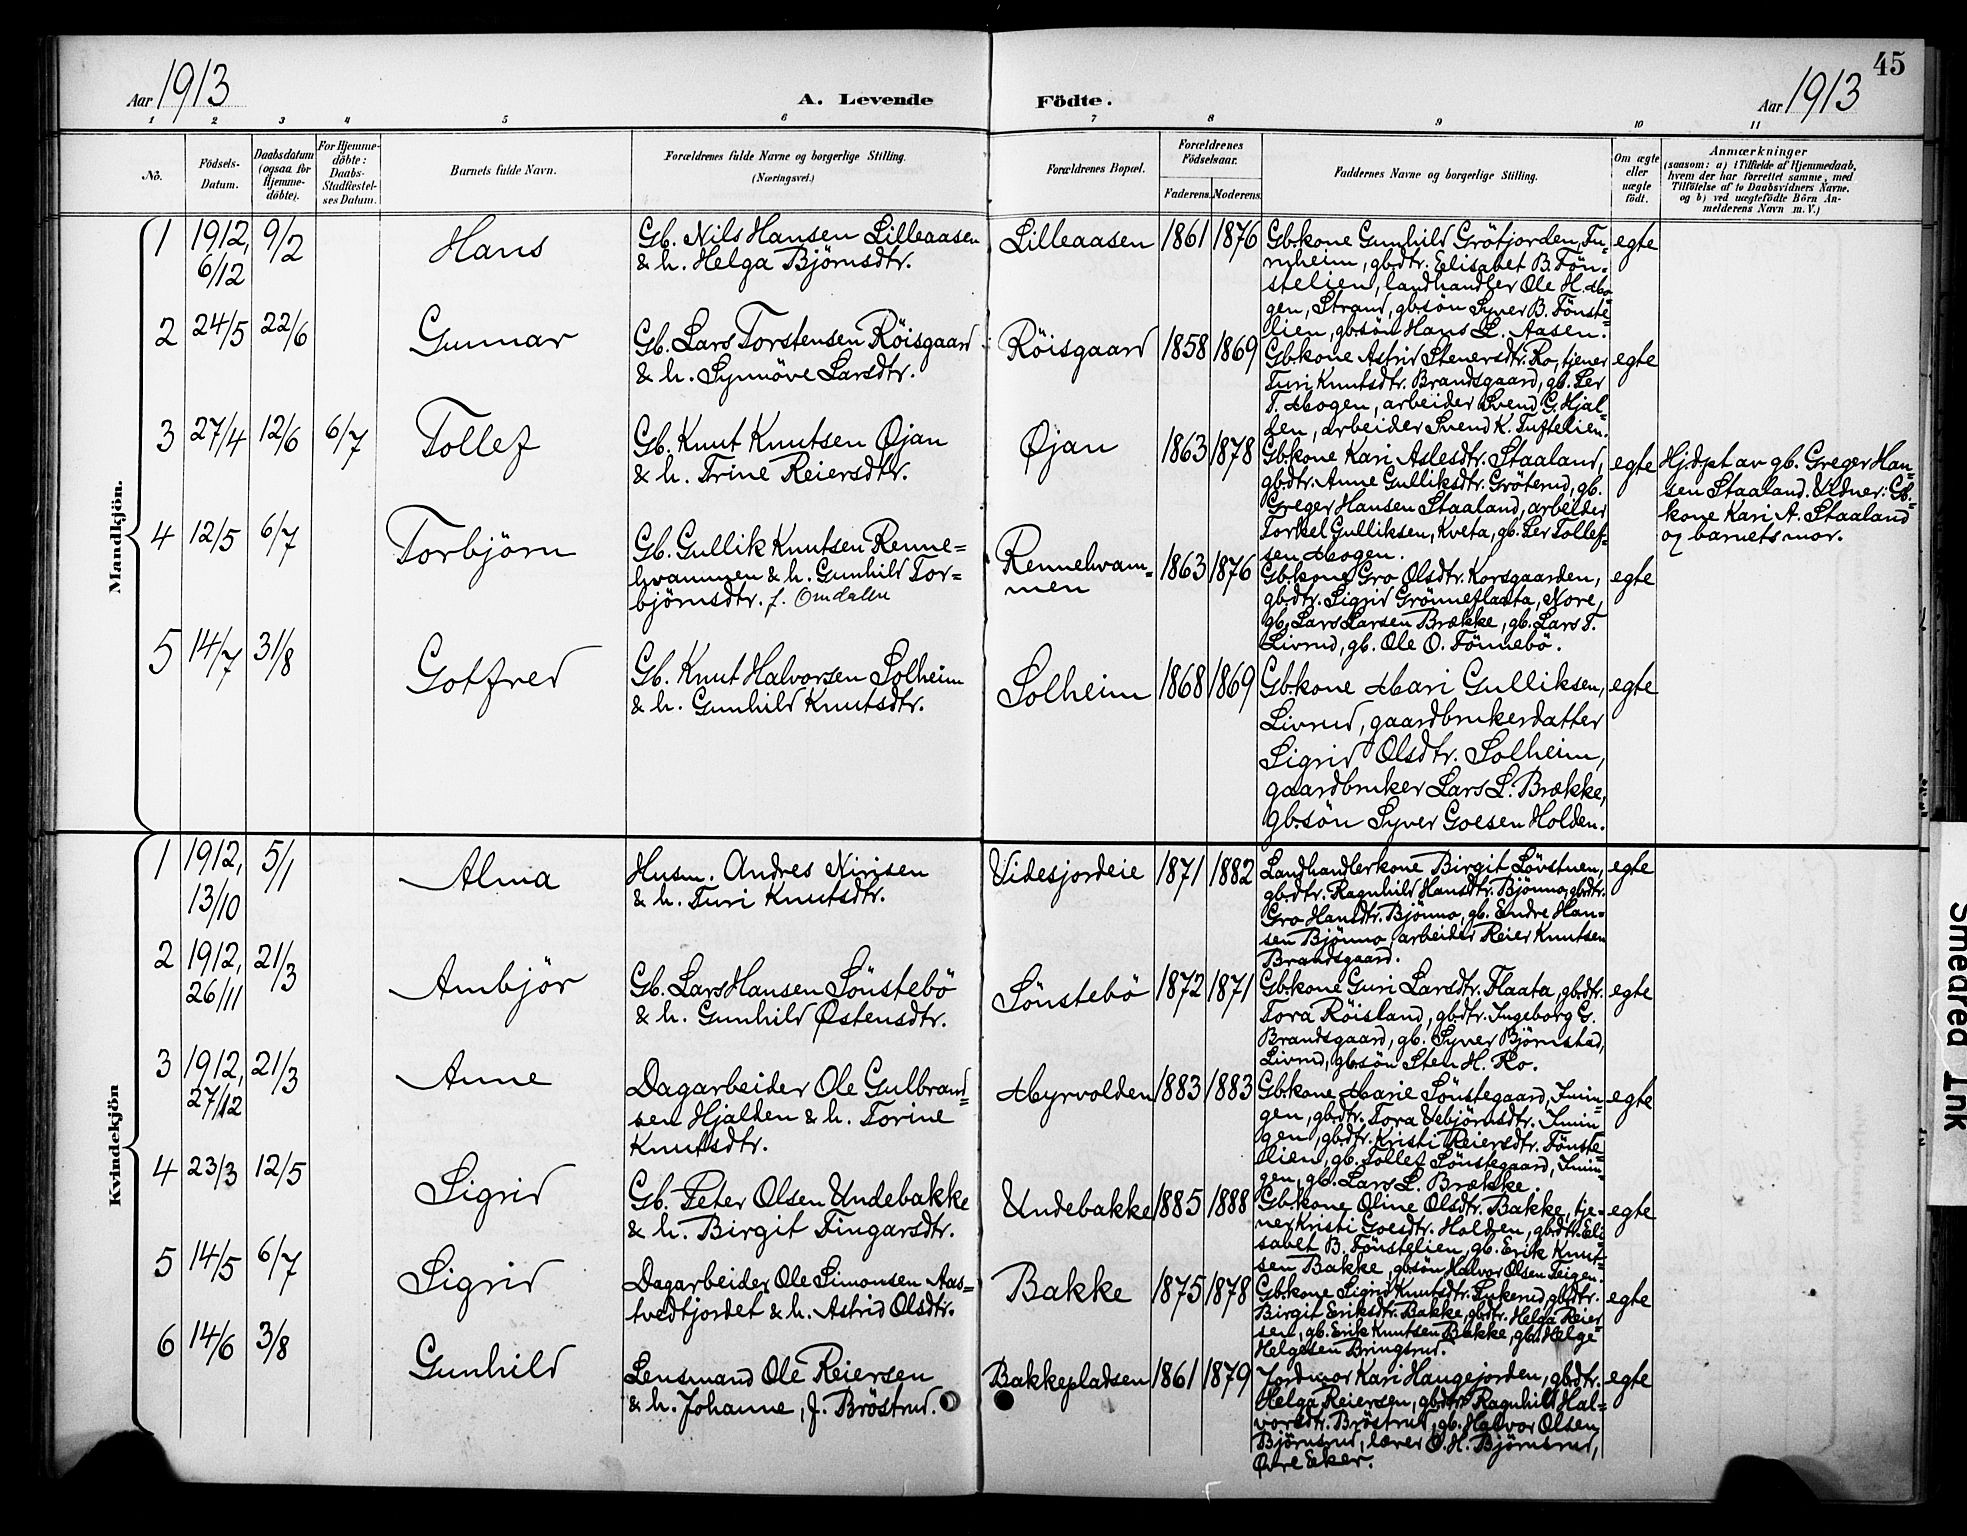 45
Aar 1913
A. Levende Födte.
Aar 1913
1 2 3 4 5 6 7 8 9 10 11
No.
Födsels-Datum.
Daabsdatum (ogsaa for Hjemme-döbte).
For Hjemme-döbte: Daabs-Stadfæstel-ses Datum.
Barnets fulde Navn.
Forældrenes fulde Navne og borgerlige Stilling.
(Næringsvei.)
Forældrenes Bopæl.
Forældrenes Födselsaar.
Faderens. Moderens.
Faddernes Navne og borgerlige Stilling.
Om ægte eller uægte födt.
Anmærkninger
(saasom: a) i Tilfælde af Hjemmedaab,
hvem der har forrettet samme, med
Tilföielse af to Daabsvidners Navne.
og b) ved uægtefödte Börn An-
melderens Navn m. V.)
Mandkjön.
1 1912, 6/12 9/2 Hans
Gb. Nils Hansen Lilleaasen
& h. Helga Bjørnsdtr.
Lilleaasen 1861 1876
Gbkone Gunhild Grötjorden, Tu-
nheim, gbdtr. Elisabet B. Fön-
stelien, landhandler Ole H. Mo-
gen, Strand, gbsön Syver B. Fönste-
lien, gbsön Hans L. Aasen.
egte
2 24/5 22/6 Gunnar
Gb. Lars Torstensen Röisgaard
& h. Synnöve Larsdtr.
Röisgaard 1858 1869
Gbkone Astrid Stenersdtr. Ro, tjener
Turi Knutsdtr. Brandsgaard, gb. Per
T. Mogen, arbeider Svend G. Hjal-
den, arbeider Svend K. Tuftelien.
egte
3 27/4 12/6 6/7 Tollef
Gb. Knut Knutsen Øjan
& h. Trine Reiersdtr.
Øjan 1863 1878
Gbkone Kari Aslesdtr. Staaland,
gbdtr. Anne Gulliksdtr. Gröterud, gb.
Greger Hansen Staaland, arbeider
Torkel Gulliksen, Kveta, gb. Per Tollef-
sen Mogen.
egte
Hjdpt av gb. Greger Han-
sen Staaland. Vidner: Gb.
kone Kari A. Staaland
og barnets mor.
4 12/5 6/7 Torbjörn
Gb. Gullik Knutsen Renne-
hvammen & h. Gunhild Tor-
björnsdtr. f. Omdalen
Rennehvam-
men 1863 1876
Gbkone Gro Olsdtr. Korsgaarden,
gbdtr. Sigrid Grönneflaata, Nore,
gb. Lars Larsen Brække, gb. Lars T.
Livrud, gb. Ole O. Fönnebö.
egte
5 14/7 31/8 Gotfred
Gb. Knut Halvorsen Solheim
& h. Gunhild Knutsdtr.
Solheim 1868 1869
Gbkone Mari Gulliksen,
Livrud, gaardbrukerdatter
Sigrid Olsdtr. Solheim,
gaardbruker Lars L. Brække,
gbsön Syver Goesen Holden.
egte
Kvindekjön
1 1912, 13/10 5/1 Alma
Husm. Andres Nirisen
& h. Turi Knutsdtr.
Videsjordeie 1871 1882
Landhandlerkone Birgit Lövstuen,
gbdtr. Ragnhild Hansdtr. Bjönno, gbdtr.
Gro Hansdtr. Bjönno, gb. Endre Han-
sen Bjönno, arbeider Reier Knutsen
Brandsgaard.
egte
2 1912, 26/11 21/3 Ambjör
Gb. Lars Hansen Sönstebö
& h. Gunhild Østensdtr.
Sönstebö 1872 1871
Gbkone Guri Larsdtr. Flaata, gbdtr.
Tora Röisland, gbdtr. Ingeborg G.
Brandsgaard, gb. Syver Björnstad,
Livrud, gbsön Sten H. Ro.
egte
3 1912, 27/12 21/3 Anne
Dagarbeider Ole Gulbrand-
sen Hjalden & h. Torine
Knutsdtr.
Myrvolden 1883 1883
Gbkone Marie Sönstegaard, Imin-
gen, gbdtr. Tora Vebjörnsdtr. Imin
gen, gbdtr. Kristi Reiersdtr. Fönste-
lien, gb. Tollef Sönstegaard, Imin-
gen, gb. Lars L. Brække.
egte
4 23/3 12/5 Sigrid
Gb. Peter Olsen Undebakke
& h. Birgit Fingarsdtr.
Undebakke 1885 1888
Gbkone Oline Olsdtr. Bakke, tje-
ner Kristi Goesdtr. Holden, gbdtr. Eli-
sabet B. Fönstelien, gb. Erik Knut-
sen Bakke, gbsön Halvor Olsen Teigen.
egte
5 14/5 6/7 Sigrid
Dagarbeider Ole Simonsen Aas-
tvedtjordet & h. Astrid Olsdtr.
Bakke 1875 1878
Gbkone Sigrid Knutsdtr. Lukerud, gbdtr.
Birgit Eriksdtr. Bakke, gbdtr. Helga Reier-
sen, gb. Erik Knutsen Bakke, gb. Helge
Helgesen Bringsrud.
egte
6 14/6 3/8 Gunhild
Lensmand Ole Reiersen
& h. Johanne, f. Bröstrud.
Bakkepladsen 1861 1879
Jordmor Kari Haugejorden, gbdtr.
Helga Reiersen, gbdtr. Ragnhild Hal-
vorsdtr. Bröstrud, gb. Halvor Olsen
Björnsrud, lærer O. H. Björnsrud,
Øvre Eiker.
egte
Smeared Ink